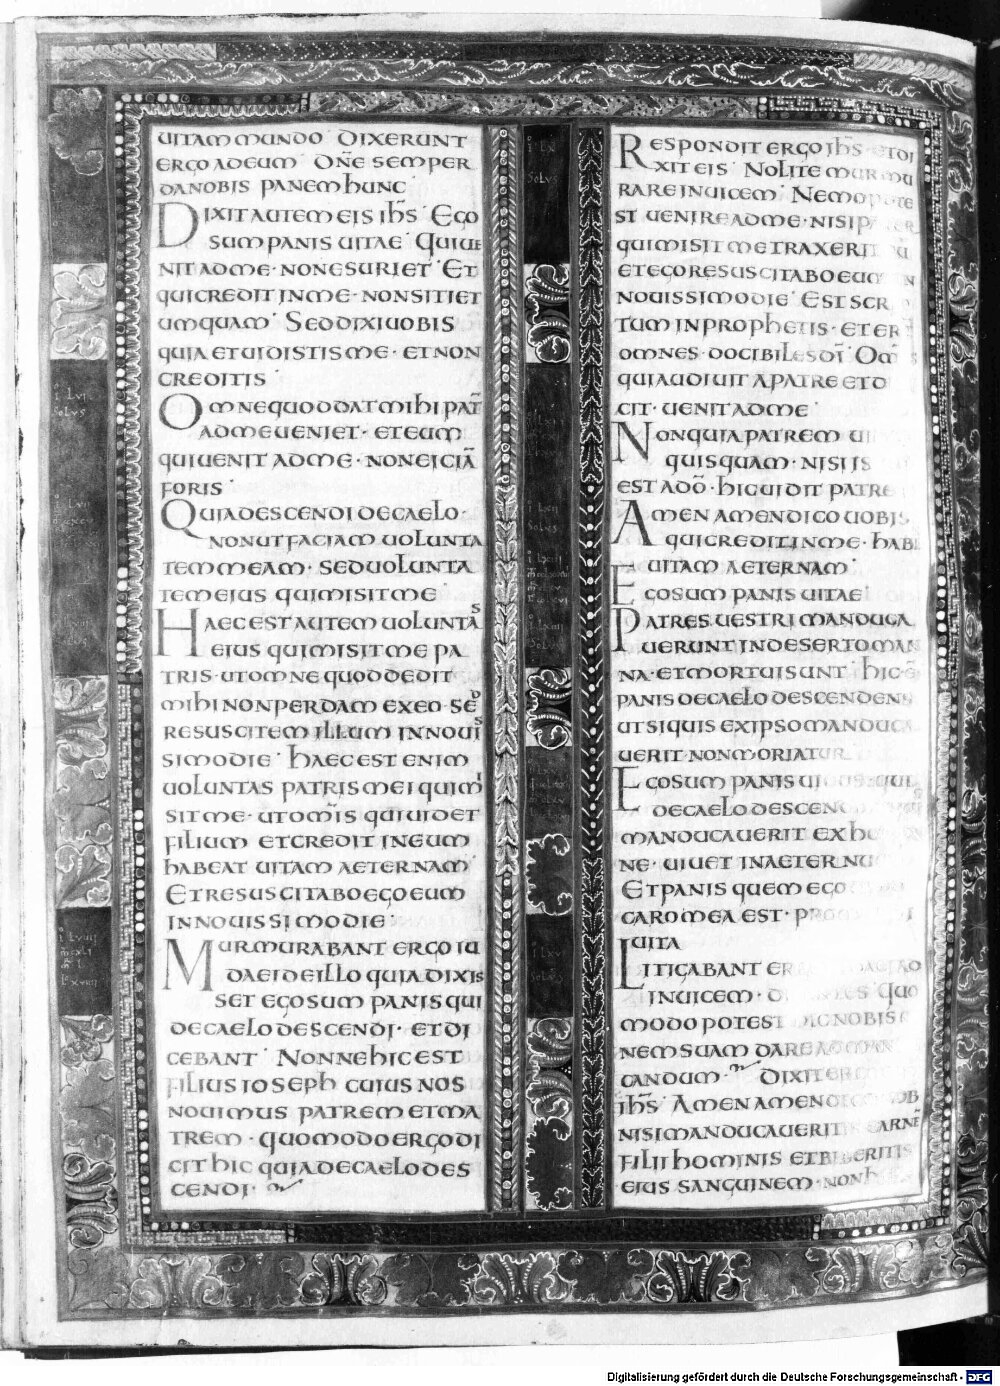 UITAM MUNDO DIXERUNT
ERGO AD EUM DÑE SEMPER
DA NOBIS PANEM HUNC
DIXIT AUTEM EIS IH̄S EGO
SUM PANIS UITAE QUI UE
NIT AD ME · NON ESURIET ET
QUI CREDIT IN ME · NON SITIET
UMQUAM SED DIXI UOBIS
QUIA ET UIDISTIS ME · ET NON
CREDITIS
OMNE QUOD DAT MIHI PAT̄
AD ME UENIET · ET EUM
QUI UENIT AD ME · NON EICIĀ
FORIS
QUIA DESCENDI DE CAELO ·
NON UT FACIAM UOLUNTA
TEM MEAM · SED UOLUNTA
TEM EIUS QUI MISIT ME
HAEC EST AUTEM UOLUNTAS
EIUS QUI MISIT ME PA
TRIS · UT OMNE QUOD DEDIT
MIHI NON PERDAM EX EO · SED
RESUSCITEM ILLUM IN NOUIS
SIMO DIE HAEC EST ENIM
UOLUNTAS PATRIS MEI QUI MI
SIT ME · UT OM̄IS QUI UIDET
FILIUM ET CREDIT IN EUM
HABEAT UITAM AETERNAM
ET RESUSCITABO EGO EUM
IN NOUISSIMO DIE
MURMURABANT ERGO IU
DAEI DE ILLO QUIA DIXIS
SET EGO SUM PANIS QUI
DE CAELO DESCENDI · ET DI
CEBANT NONNE HIC EST
FILIUS IOSEPH CUIUS NOS
NOUIMUS PATREM ET MA
TREM · QUOMODO ERGO DI
CIT HIC QUIA DE CAELO DES
CENDI ·
RESPONDIT ERGO IH̄S ET DI
XIT EIS NOLITE MURMU
RARE INUICEM NEMO POTE
ST UENIRE AD ME · NISI PATER
QUI MISIT ME TRAXERIT
ET EGO RESUSCITABO EUM IN
NOUISSIMO DIE EST SCR
TUM IN PROPHETIS · ET ER
OMNES DOCIBILES DĪ
QUI AUDIUIT A PATRE ET D
CIT · UENIT AD ME
NON QUIA PATREM UI
QUISQUAM · NISI IS
EST A DŌ · HIC UIDIT PATRE
AMEN AMEN DICO UOBIS
QUI CREDIT IN ME · HABE
UITAM AETERNAM
EGO SUM PANIS UITAE
PATRES UESTRI MANDUCA
UERUNT IN DESERTO MAN
NA · ET MORTUI SUNT HIC Ē
PANIS DE CAELO DESCENDENS
UT SI QUIS EX IPSO MANDUCA
UERIT · NON MORIATUR
EGO SUM PANIS UIUUS · QUI
DE CAELO DESCEN
MANDUCAUERIT EX HO
NE · UIUET IN AETERNU
ET PANIS QUEM EGO
CARO MEA EST · PRO
UITA
LITIGABANT ER IUDAEI AD
INUICEM · DICENTES QUO
MODO POTEST HIC NOBIS
NEM SUAM DARE AD MAN
CANDUM · DIXIT ER
IH̄S AMEN AMEN DICO UOB
NISI MANDUCAUERITIS CARNĒ
FILII HOMINIS ET BIBERITIS
EIUS SANGUINEM · NON H
SOLUS
SOLUS
SOLUS
SOLUS
Digitalisierung gefördert durch die Deutsche Forschungsgemeinschaft - DFG